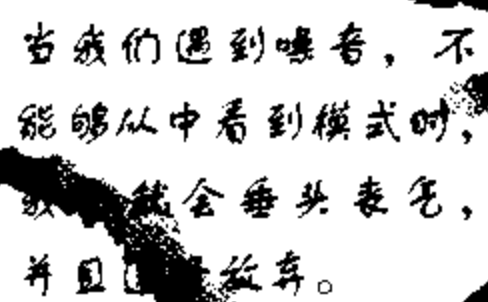 当我们遇到噪音，不
能够从中看到模式时，
我就会垂头丧气，
并且放弃。